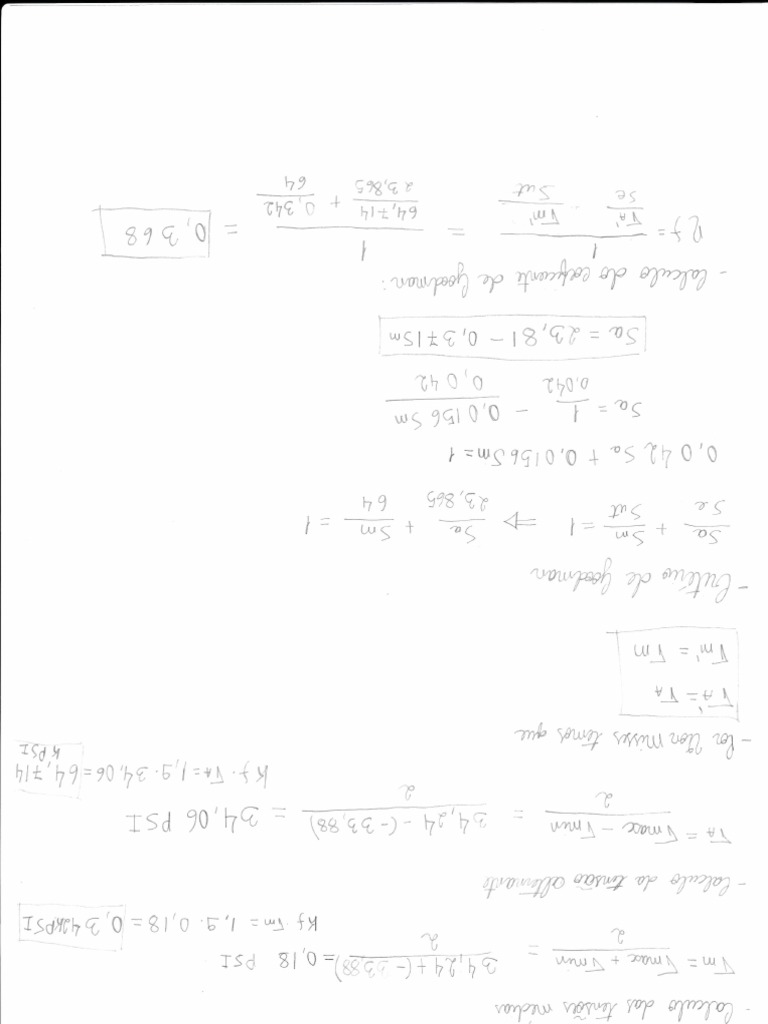 - Calculo das tensões médias
σm = (σmax + σmin)/2 = (34,24 + (-33,88))/2 = 0,18 PSI
Kf · σm = 1,9 · 0,18 = 0,342KPSI
- Calculo da tensão alternante
σA = (σmax - σmin)/2 = (34,24 - (-33,88))/2 = 34,06 PSI
Kf · σA = 1,9 · 34,06 = 64,714 KPSI
- Por Von misses temos que
σA' = σA
σm' = σm
- Critério de Goodman
Sa/Se + Sm/Sut = 1 ⇒ Sa/23,865 + Sm/64 = 1
0,042 Sa + 0,0156 Sm = 1
Sa = 1/0,042 - 0,0156 Sm/0,042
Sa = 23,81 - 0,371Sm
- Calculo do coeficiente de Goodman:
ηf = 1/(σA'/Se + σm'/Sut) = 1/(64,714/23,865 + 0,342/64) = 0,368